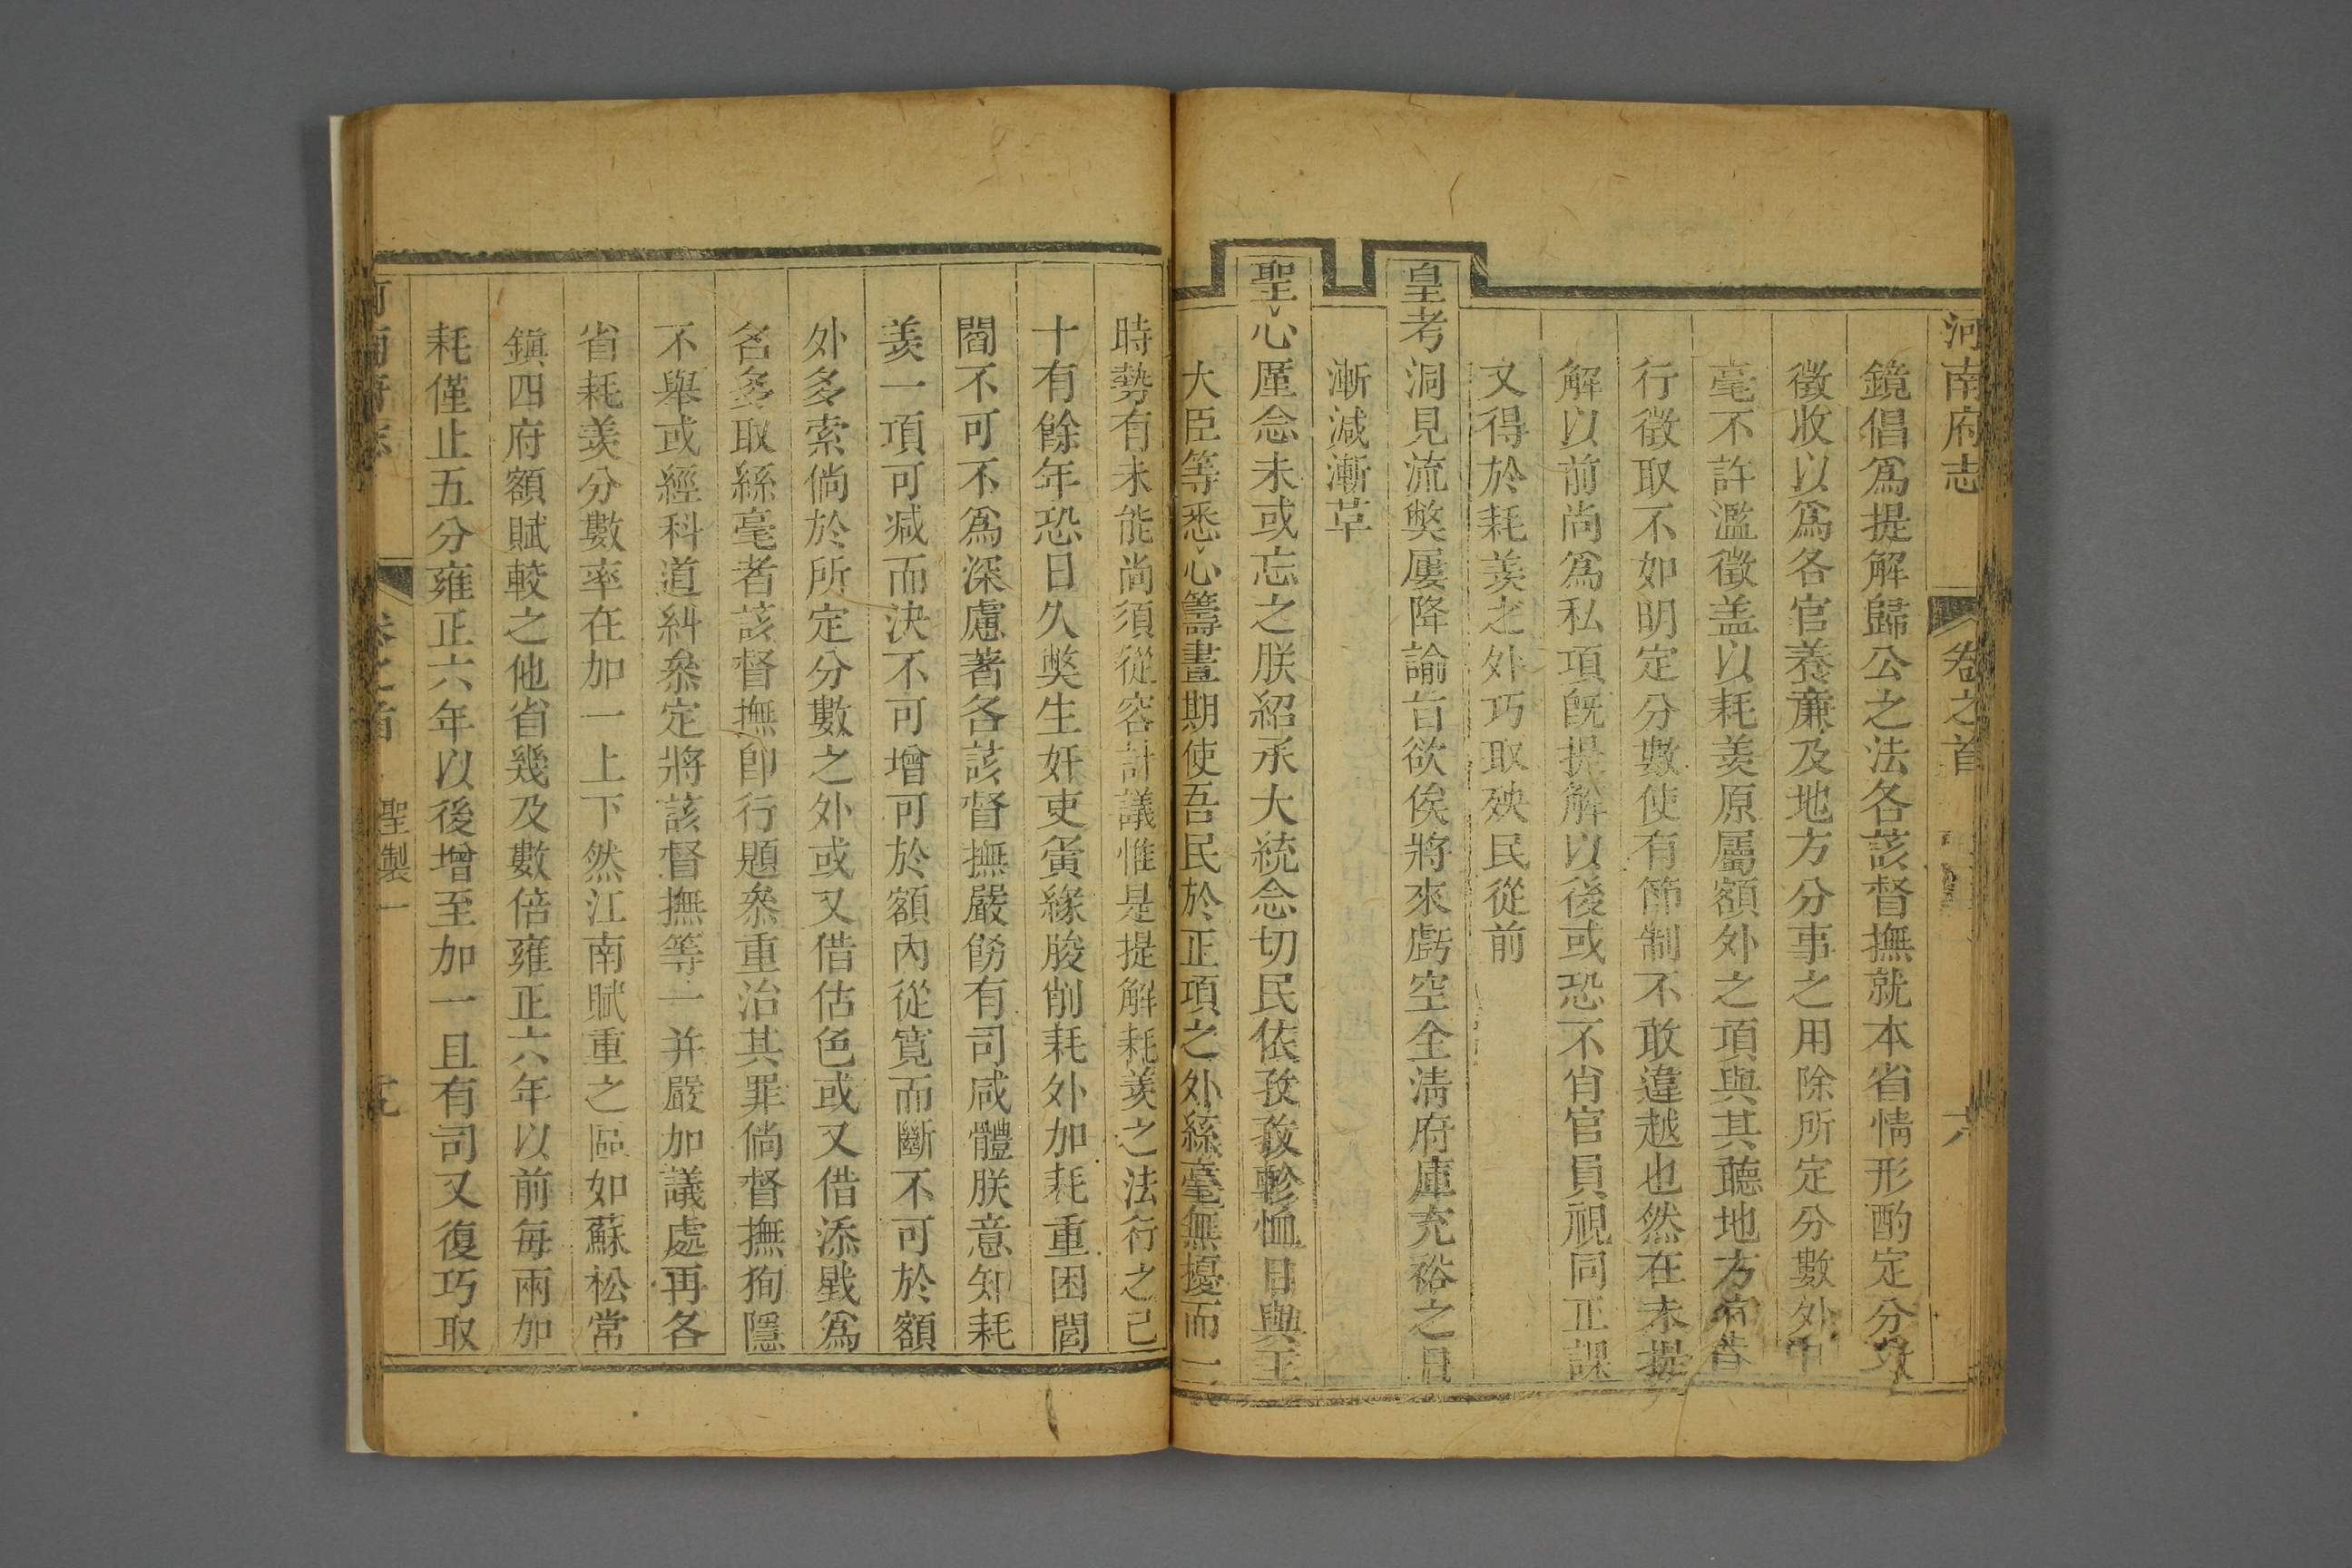 河南府志
卷之首
六
鏡倡爲提解歸公之法各該督撫就本省情形酌定分數
徵收以爲各官養廉及地方分事之用除所定分數外
毫不許濫徵盖以耗羨原屬額外之項與其聽地方
行徵取不如明定分數使有節制不敢違越也然在未提
解以前尚爲私項旣提解以後或恐不肖官員視同正課
又得於耗羨之外巧取殃民從前
皇考洞見流獘屢降諭旨欲俟將來虧空全淸府庫充裕之日
漸減漸革
聖心厪念未或忘之朕紹承大統念切民依孜孜軫恤日與王
大臣等悉心籌畫期使吾民於正項之外絲毫無擾而一
時勢有未能尚須從容計議惟是提解耗羨之法行之已
十有餘年恐日久獘生奸吏夤緣朘削耗外加耗重困閭
閻不可不爲深慮著各該督撫嚴飭有司咸體朕意知耗
羨一項可减而決不可增可於額內從寛而斷不可於額
外多索倘於所定分數之外或又借估色或又借添戥爲
名多取絲毫者該督撫卽行題叅重治其罪倘督撫狥隱
不舉或經科道糾叅定將該督撫等一并嚴加議處再各
省耗羨分數率在加一上下然江南賦重之區如蘇松常
鎮四府額賦較之他省幾及數倍雍正六年以前每兩加
耗僅止五分雍正六年以後增至加一且有司又復巧取
河南府志
卷之首
聖製一